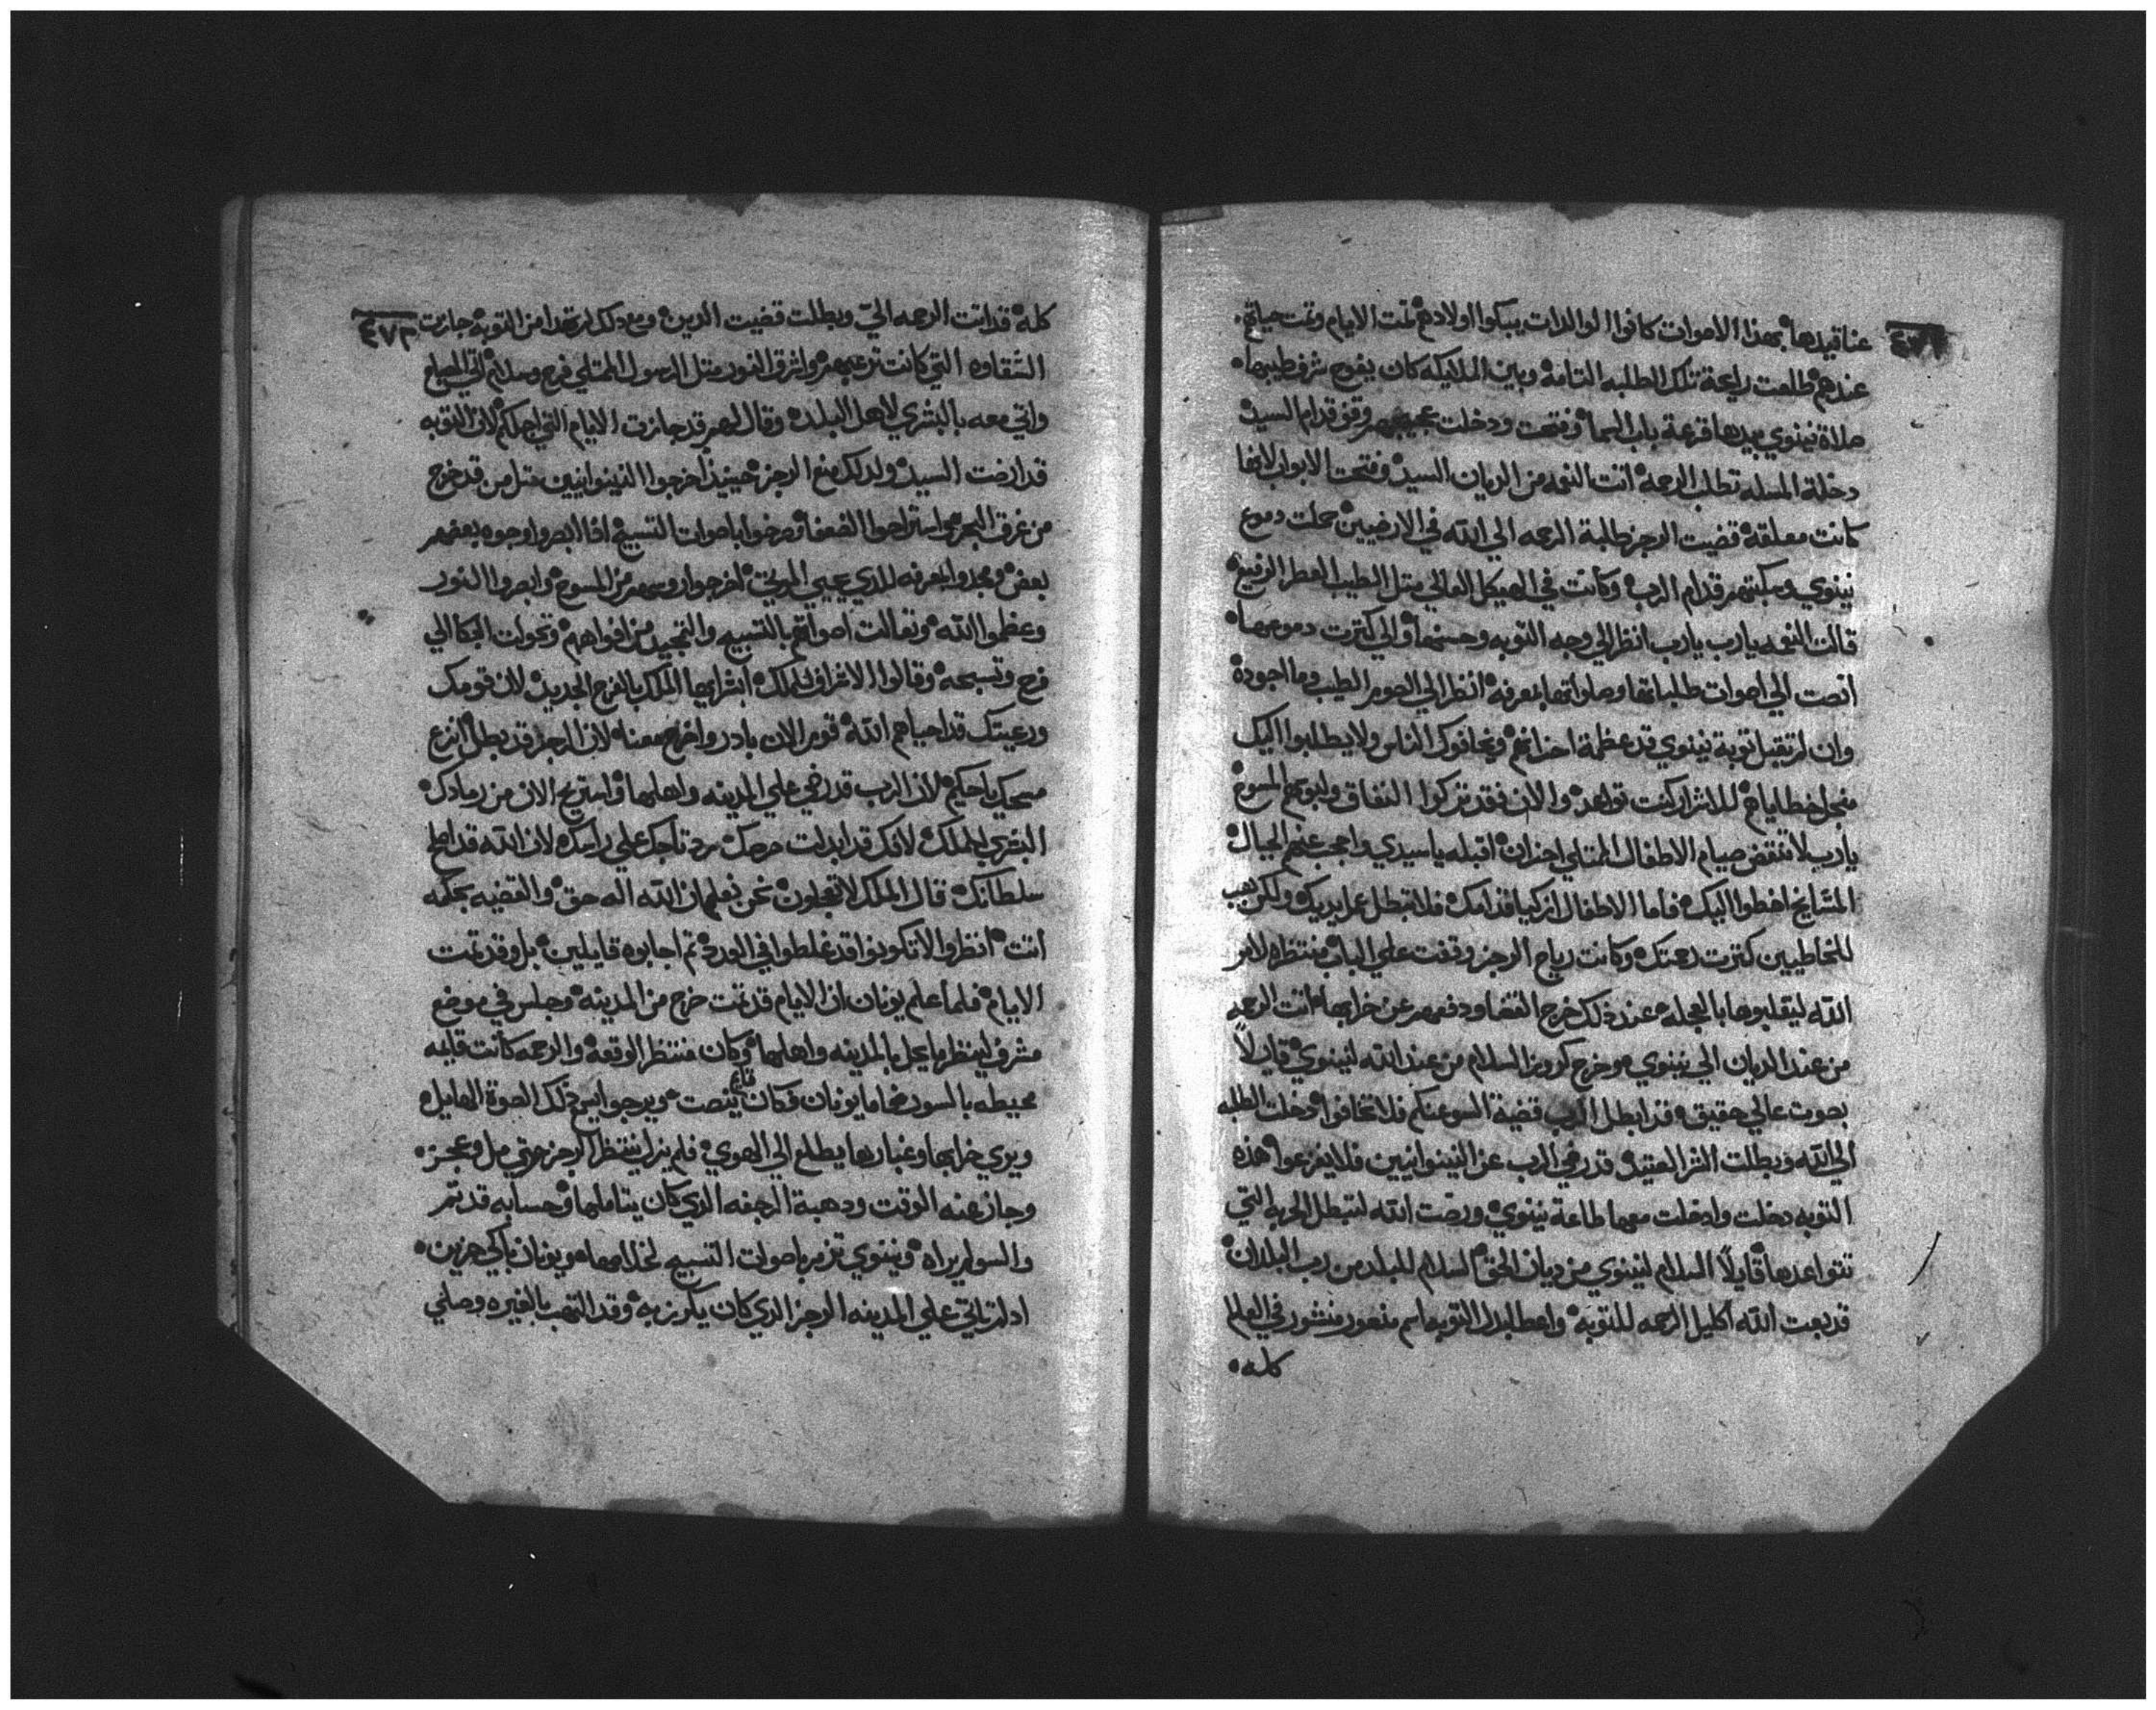 عناقيدها بهذا الاصوات كانوا الوالدات يبكوا اولادهم تمت الايام وتمت حياتهم
عندهم طلعت رايحة تلك الطلبه التامه وبين الملايكه كان يفوح شرف طيبها
صلاة نينوي بيدها قرعة باب السما وفتحت ودخلت قدام السيد
دخلة المسله تطلب الرحمه اتت النعمه من الديان السيد وفتحت الابواب لانها
كانت معلقه قضيت الرجز طلبة الرحمه الي الله في الارضيين حملت دموع
نينوي وسكبتهم قدام الرب وكانت في الهيكل العالي متل الطيب العطر الرفيع
قالت النعمه يارب يارب انظر الي وجه التوبه وحسنها والي كترت دموعها
انصت الي اصوات طلباتها وصلواتها بمعرفه انظر الي الصوم الطيب وما اجوده
وان لم تقبل توبة نينوي قد عظمة احزانهم ويخافوك الناس ولا يطلبوا اليك
منجل خطاياهم للاشرار كنت تواعد والان فقد تركوا النفاق ولبوسهم المسوح
يارب لا تنقض صيام الاطفال الممتلي احزان اقبله ياسيدي واعجب عنهم الجبال
المشايخ اخطوا اليك فاما الاطفال ازكيا قدامك فلا تبطل عمل يديك ولكن
للخاطيين كترت رحمتك وكانت رياح الرجز وقفت علي الباب منتظره لامر
الله ليقلبوها بالعجله عند ذلك خرج القضا ودفعهم عن خرابها اتت الرحمه
من عند الديان الي نينوي وخرج كروز السلام من عند الله لنينوي قايلاً
بصوت عالي حقيق قد ابطل الرب قضية السو عنكم فلا تخافوا دخلت الطلبه
الي الله وبطلت الشر العتيد قد رضي الرب عن النينوانيين فلا يفزعوا هذه
التوبه دخلت وادخلت معها طاعة نينوي ورضت الله لتبطل الحربه التي
تتواعدها قايلاً السلام لنينوي من ديان الحق السلام للبلد من رب البلدان
قد بعت الله اكليل الرحمه للتوبه واعطا لبلد التوبه اسم منصور منشور في العالم
كله
٤٧٣
كله قد اتت الرحمه الي وبطلت قضيت الدين ومع دلك لم تهدا من التوبه جازت
الشقاوه التي كانت ترعبهم واشرق النور متل الرسول الممتلي فرح وسلام اتي الصباح
واتي معه بالبشري لاهل البلده وقال لهم قد جازت الايام التي اجلكم لان التوبه
قد ارضت السيد ولدلك منع الرجز حينيذ اخرجوا النينوانيين متل من قد خرج
من غرق البحر واستراحوا الضعفا وصرخوا باصوات التسبيح اذا ابصروا وجوه بعضهم
بعض ومجدوا بمعرفه للدي يحيي الموتي اخرجوا روسهم من المسوح وابصروا النور
وعظموا الله وتعالت اصواتهم بالتسبيح والتمجيد من افواههم وتحولت البكا الي
فرح وتسبحه وقالوا الاشراف للملك ابشر ايها الملك بالفرح الجديد لان قومك
ورعيتك قد احياهم الله قوم الان بادر وافرح معنا لان الرجز قد بطل انزع
مسحك ياحكيم لان الرب قد رضي علي المدينه واهلها واستريح الان من رمادك
البشري للملك لانك قد ابدلت حرصك رد تاجك علي راسك لان الله قد اعطا
سلطانك قال الملك لا تعجلون نحن نعلم ان الله اله حق والقضيه بحكمه
اتت انظروا لا تكونوا قد غلطوا في العدد تم اجابوه قايلين بل وقد تمت
الايام فلما علم يونان ان الايام قد تمت خرج من المدينه وجلس في موضع
مشرف لينظر ما يحل بالمدينه واهلها وكان منتظر الوقعه والرحمه كانت قليه
محيطه بالسور فاما يونان فكان قايم ينصت ويرجوا ايس ذلك الصوة الهايل
ويري خرابها وغبارها يطلع الي الهوي فلم يزل ينتظر الرجز حتي مل وعجز
وجاز عنه الوقت ودهبة الرجفه الدي كان يتاملها وحسابه قد تم
والسو لم يراه ونينوي تزمر باصوات التسبيح لخلاصها ويونان باكي حزين
اد لم تاتي علي المدينه الرجز الدي كان يكرز به وقد التهب بالغيره وصلي